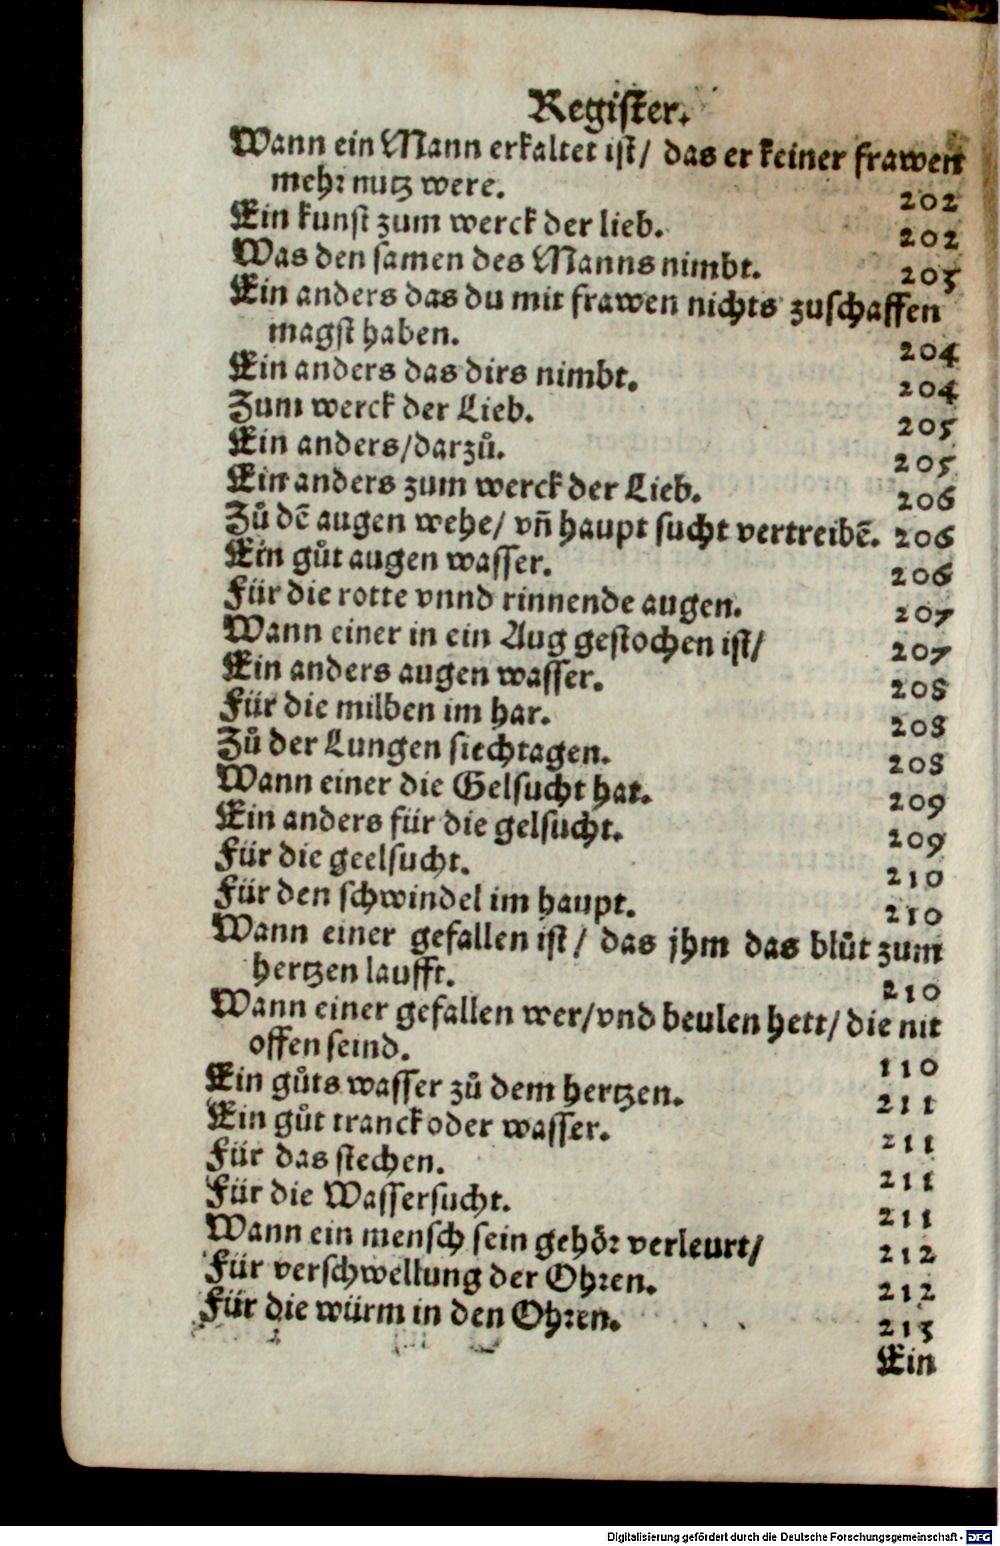 Register.
Wann ein Mann erkaltet ist/ das er keiner frawen
mehr nutz were. 202
Ein kunst zum werck der lieb. 202
Was den samen des Manns nimbt. 203
Ein anders das du mit frawen nichts zuschaffen
magst haben. 204
Ein anders das dirs nimbt. 204
Zum werck der Lieb. 205
Ein anders/darzuͦ. 205
Ein anders zum werck der Lieb. 206
Zuͦ dẽ augen wehe/ vñ haupt sucht vertreibẽ. 206
Ein guͦt augen wasser. 206
Für die rotte vnnd rinnende augen. 207
Wann einer in ein Aug gestochen ist/ 207
Ein anders augen wasser. 208
Für die milben im har. 208
Zuͦ der Lungen siechtagen. 208
Wann einer die Gelsucht hat. 209
Ein anders für die gelsucht. 209
Für die geelsucht. 210
Für den schwindel im haupt. 210
Wann einer gefallen ist/ das jhm das bluͦt zum
hertzen laufft. 210
Wann einer gefallen wer/vnd beulen hett/ die nit
offen seind. 110
Ein guͦts wasser zuͦ dem hertzen. 211
Ein guͦt tranck oder wasser. 211
Für das stechen. 211
Für die Wassersucht. 211
Wann ein mensch sein gehör verleurt/ 212
Für verschwellung der Ohren. 212
Für die würm in den Ohren. 213
Ein
Digitalisierung gefördert durch die Deutsche Forschungsgemeinschaft - DFG